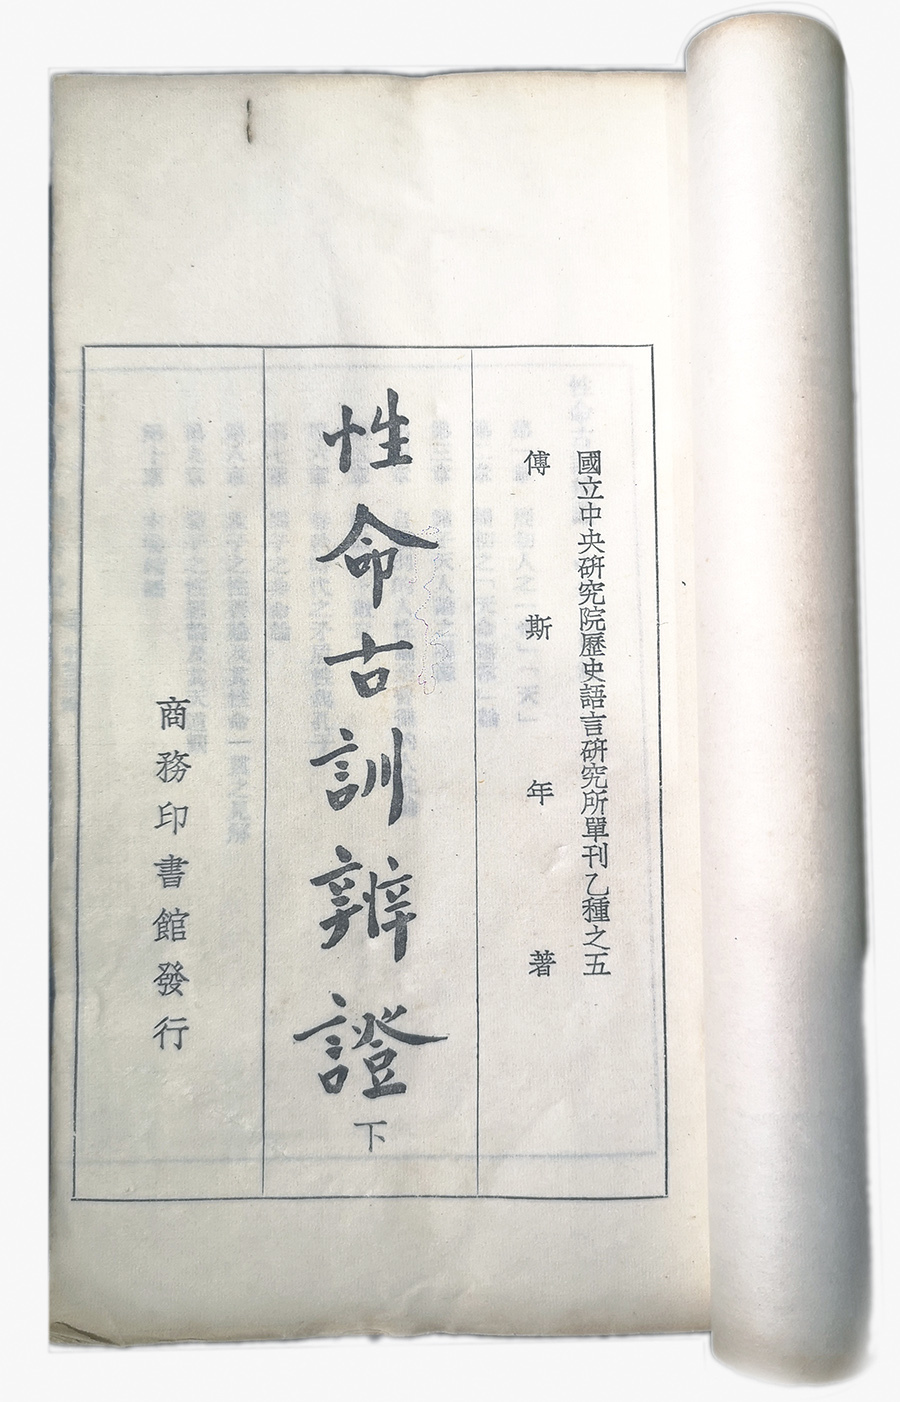 國立中央硏究院歷史語言硏究所單刊乙種之五
傅斯年著
性命古訓辨證下
商務印書館發行